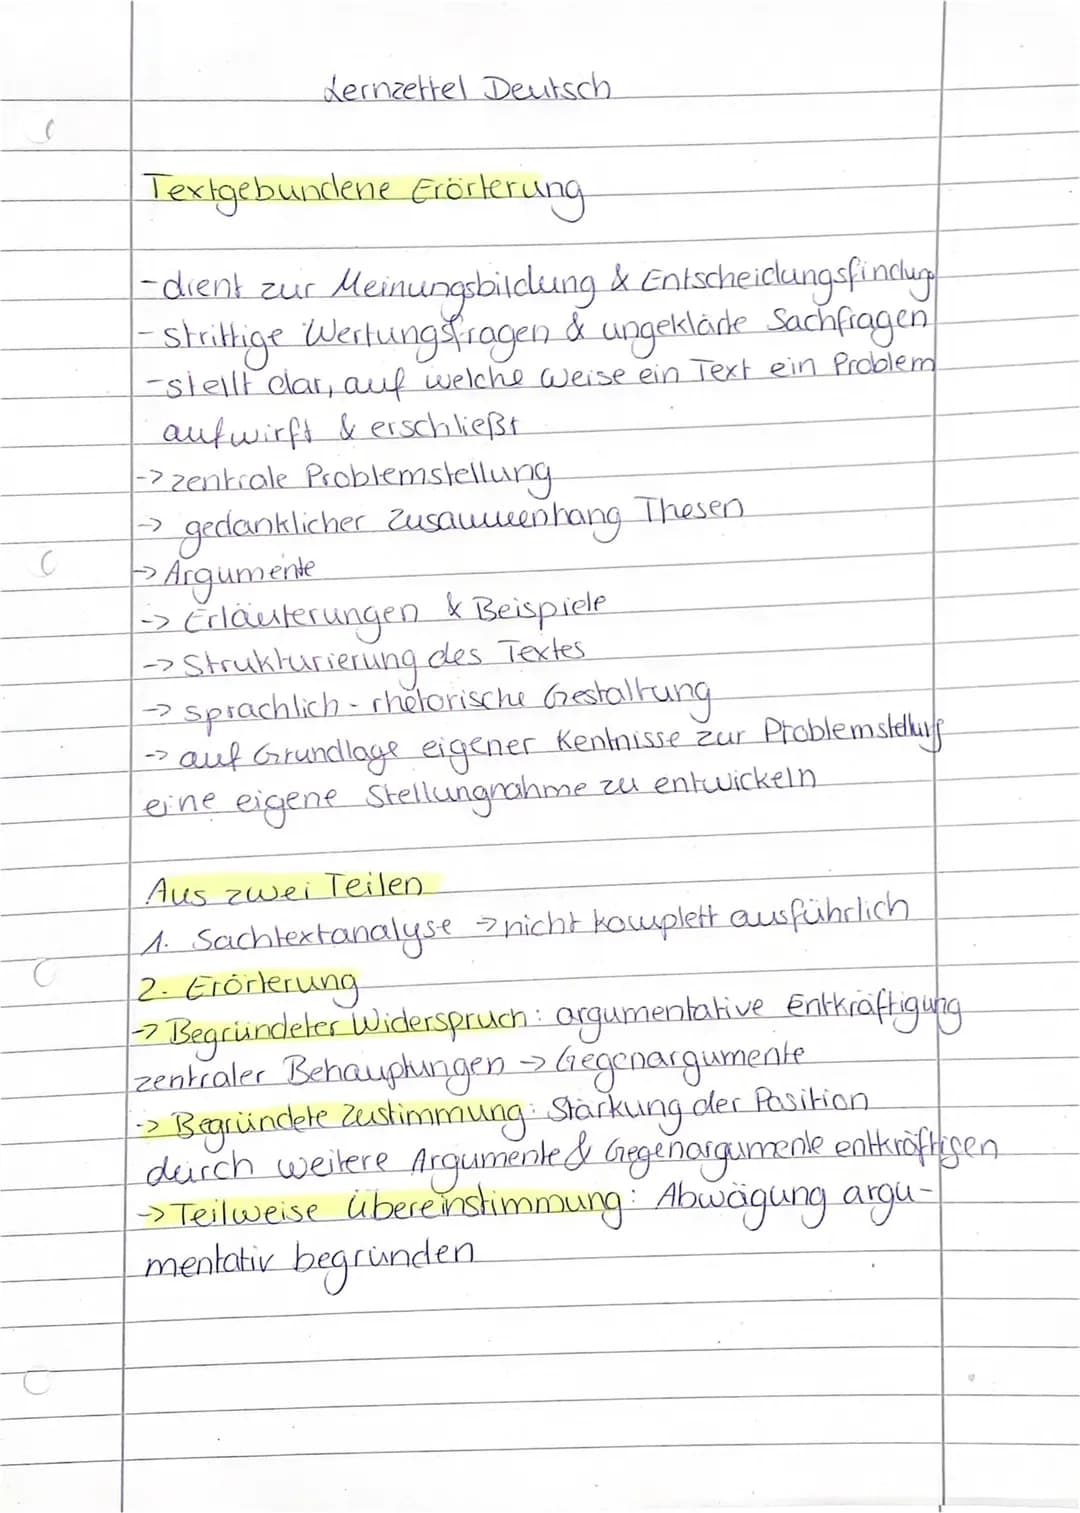 Lernzettel Deutsch
Textgebundene Erörterung
- dient zur Meinungsbildung & Entscheidungsfindung
- strittige Wertungsfragen & ungeklärte Sachfragen
- stellt dar, auf welche Weise ein Text ein Problem
aufwirft & erschließt
-> zentrale Problemstellung
-> gedanklicher Zusammenhang Thesen
-> Argumente
-> Erläuterungen & Beispiele
-> Strukturierung des Textes
-> sprachlich - rhetorische Gestaltung
-> auf Grundlage eigener Kentnisse zur Problemstellung
eine eigene Stellungnahme zu entwickeln
Aus zwei Teilen
1. Sachtextanalyse -> nicht komplett ausführlich
2. Erörterung
-> Begründeter Widerspruch: argumentative Entkräftigung
zentraler Behauptungen -> Gegenargumente
-> Begründete Zustimmung: Stärkung der Position
durch weitere Argumente & Gegenargumente entkräftigen
-> Teilweise Übereinstimmung: Abwägung argu-
mentativ begründen